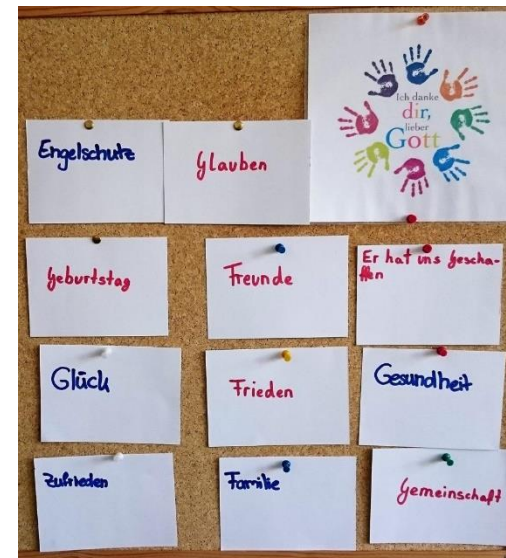 Ich danke
dir,
lieber
Gott
Engelschutz
Glauben
Geburtstag
Freunde
Er hat uns gescha-
ffen
Glück
Frieden
Gesundheit
Zufrieden
Familie
Gemeinschaft